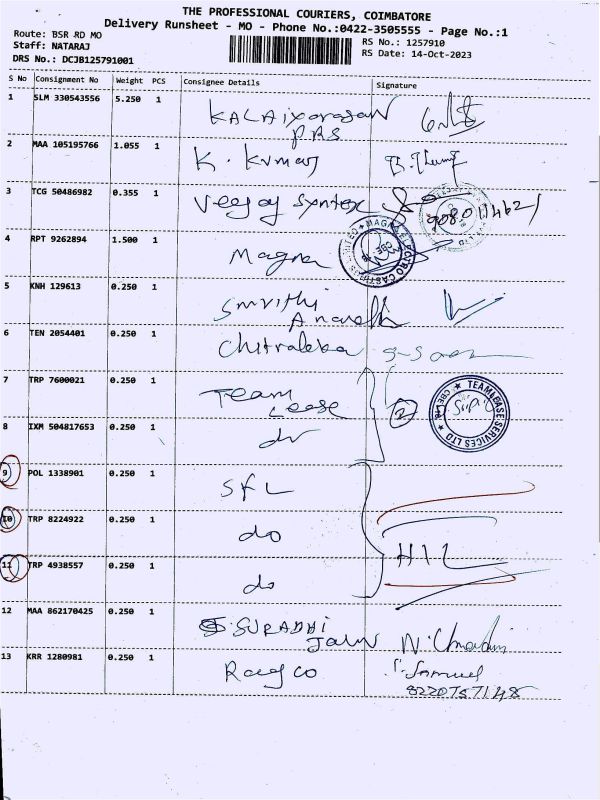 THE PROFESSIONAL COURIERS, COIMBATORE
Delivery Runsheet - MO - Phone No.:0422-3505555 - Page No.:1
Route: BSR RD MO
Staff: NATARAJ
DRS No.: DCJB125791001
RS No.: 1257910
RS Date: 14-Oct-2023
S No Consignment No Weight PCS Consignee Details Signature
1 SLM 330543556 5.250 1
PRS
2 MAA 105195766 1.055 1 K. Kumar
3 TCG 50486982 0.355 1 Veejay Syntex
4 RPT 9262894 1.500 1 Magna
5 KNH 129613 0.250 1 Smrithi
6 TEN 2054401 0.250 1 Chitraleka
7 TRP 7600021 0.250 1 Team
Lease
2
TEAMLEASE SERVICES LTD
8 IXM 504817653 0.250 1 do
9 POL 1338901 0.250 1 SFL
10 TRP 8224922 0.250 1 do
HIL
11 TRP 4938557 0.250 1 do
12 MAA 862170425 0.250 1 SURABHI
13 KRR 1280981 0.250 1 Rayco Samuel